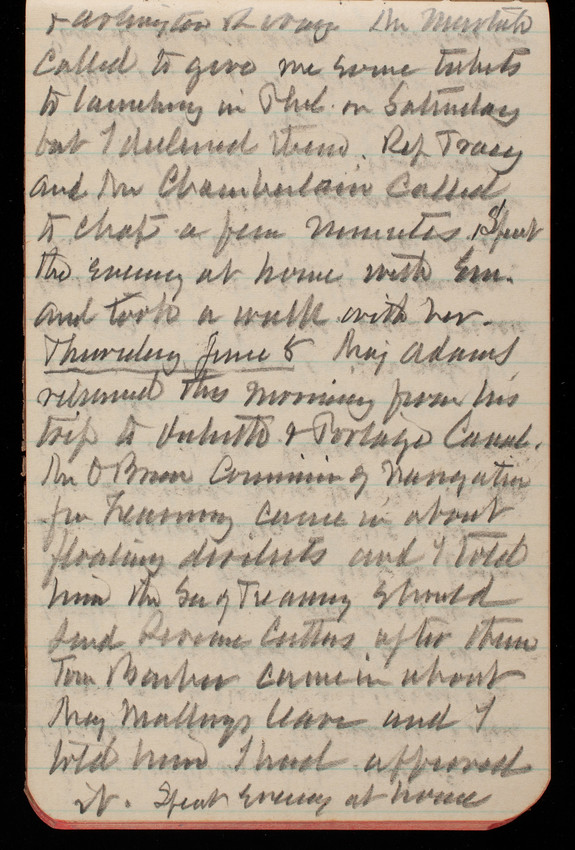 & Arlington
called to give me some tickets
to launching in Phil. on Saturday
but I declined them. Rep Tracey
and Mr Chamberlain called
to chat a few minutes. Spent
the evening at home with Em.
and took a walk with her.
Thursday June 8 Maj Adams
returned this morning from his
trip to Duluth & Portage Canal.
Mr OBrien Commis of Navigation
for Treasury came in about
floating derelicts and I told
him the Sec of Treasury should
send Revenue Cutters after them
Tom Barber came in about
Maj Mallerys leave and I
told him I had approved
it. Spent evening at home